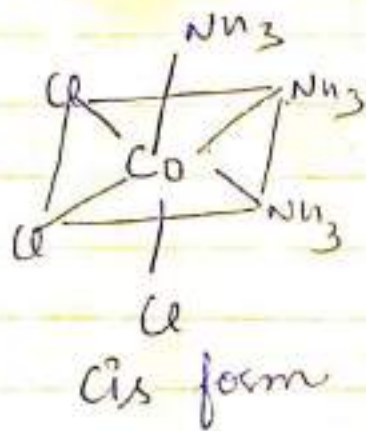 NH3
Cl NH3
Co
Cl NH3
Cl
Cis form